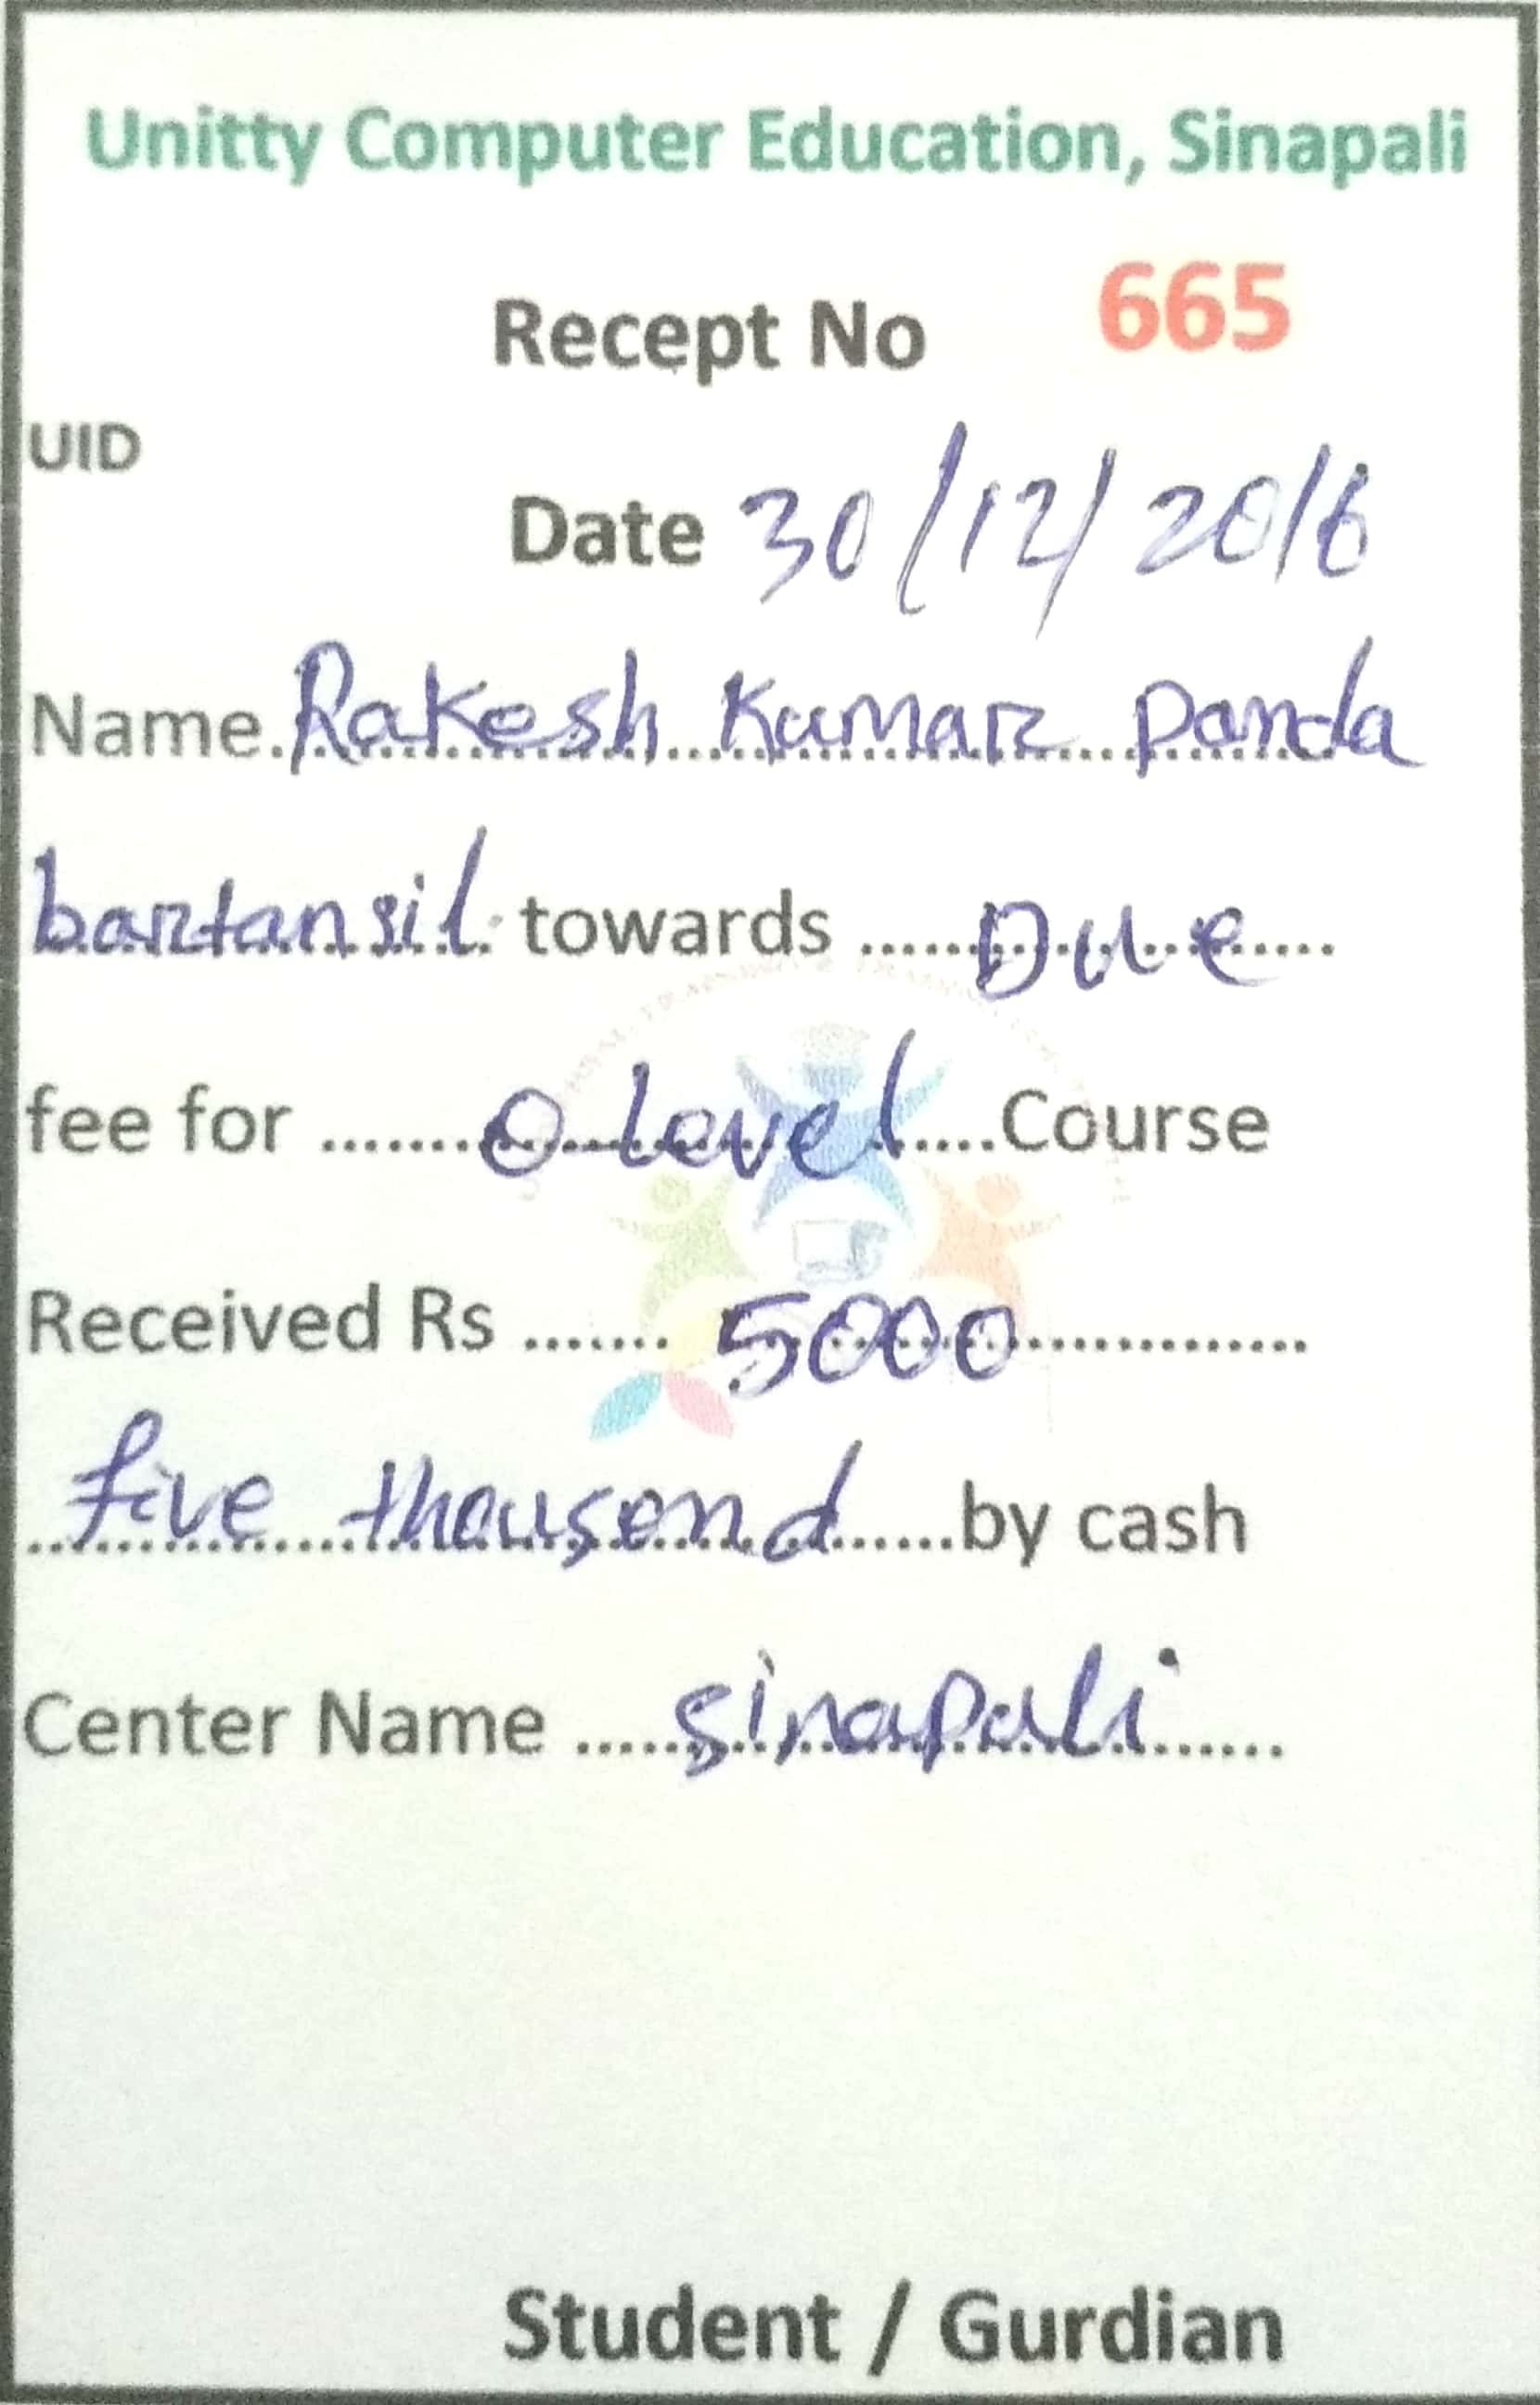 Unitty Computer Education, Sinapali
Recept No 665
UID
Date 30/12/2016
Name Rakesh Kumar Panda
bartansil towards Due
fee for O Level Course
Received Rs 5000
five thousand by cash
Center Name Sinapali
Student / Gurdian